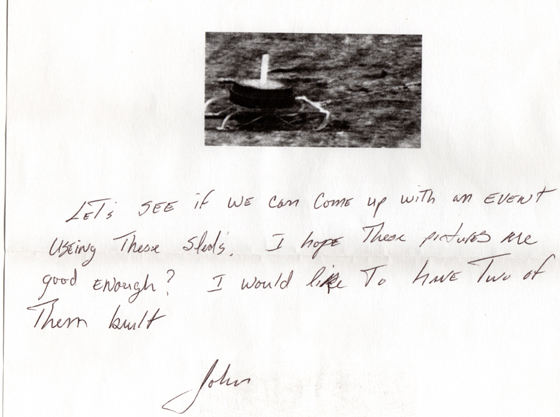 Let's SEE if WE can Come up with an EVENT
Useing These Sleds. I hope These pictures are
good ENough? I would like To HAVE Two of
Them built
John